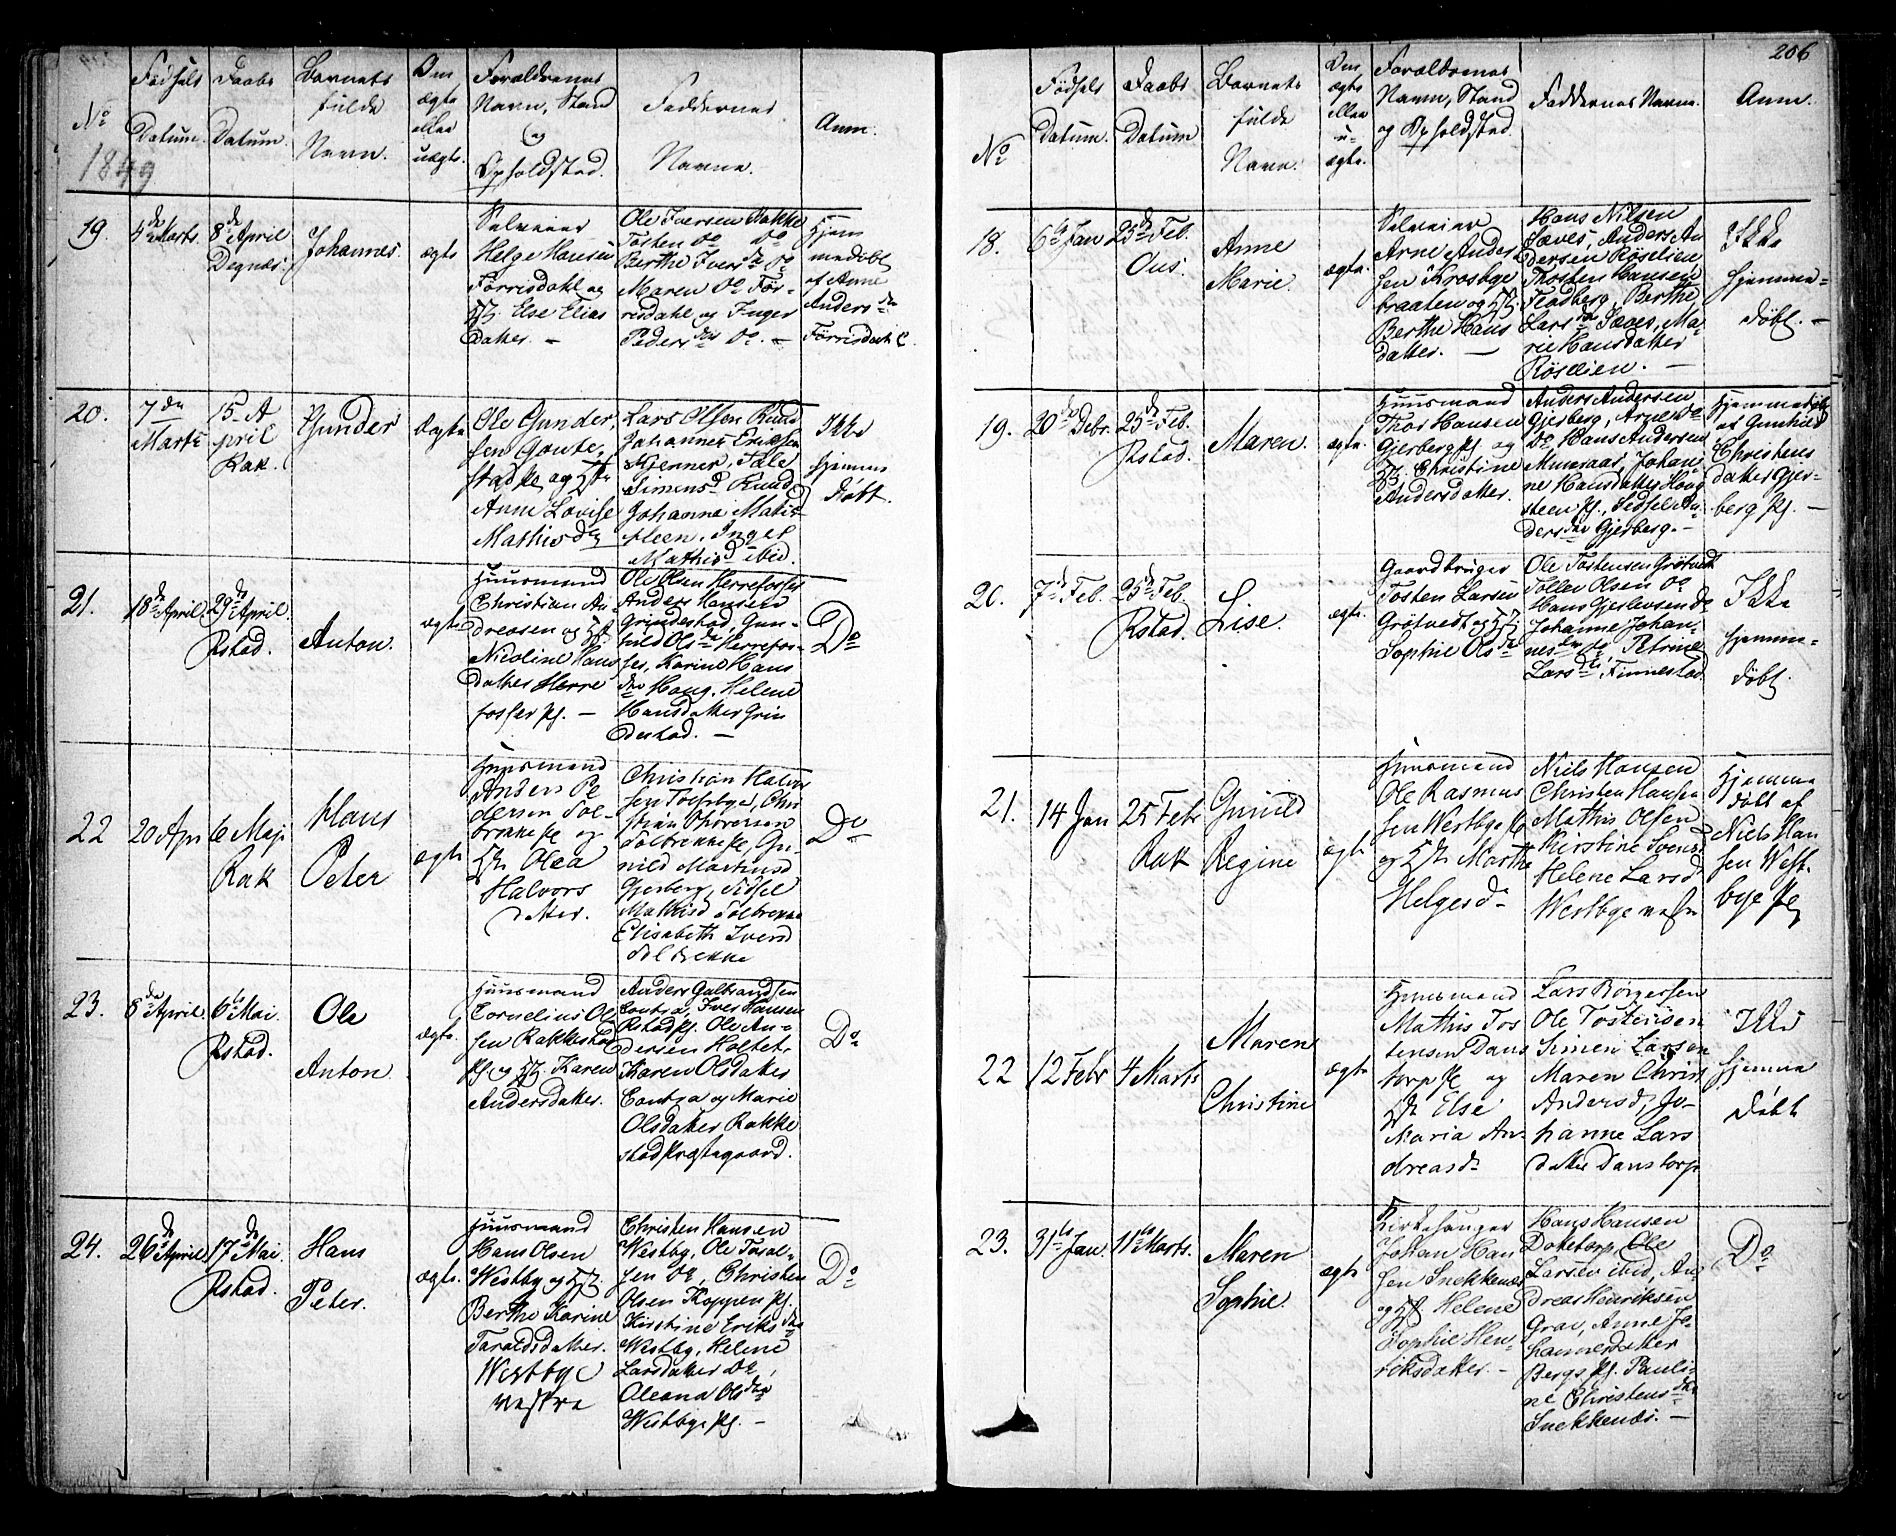 206
No
1849
Fødsels
Datum.
Daabs
Datum.
Barnets
fulde
Navn.
Om
ægte
eller
uægte.
Forældrenes
Navn, Stand
og
Opholdsted.
Faddernes
Navne.
Anm.
19.
4de Marts.
8de April
Degnæs.
Johannes.
ægte
Selveier
Helge Hansen
Förrisdahl og
Hst. Else Elias
datter. —
Ole Iversen Rakke
Tosten Do Do
Berthe Ivers d. Do
Maren Do För-
risdahl og Inger
Peders da Do. —
Hjem
medöbt
af Anne
Anders da
Förrisdahl.
20.
7de
Marts
15. A
pril
Rak.
Gunder
Ægte
Ole Gunder,
sen Gaute,
stadke og Hst
Anne Lovise
Mathisd.
Lars Olsen Ruud
Johannes Eriksen
Kjenner, Tale
Simensd Ruud
Johanne Mathis
Inger
Mathisd ibid.
Ikke
hjemme
döbt.
21.
18de April
29de April.
Rstad.
Anton.
ægte
Huusmand
Christian An
dreasen og Hst.
Nicoline Hans
datter Herre
fosser pl. —
Ole Olsen Herrefosser
Anders Hansen
Grindestad, Gun-
hild Ols da Herrefos-
ser, Karine Hans
da Haug, Helene
Hansdatter Grin
destad. —
Do
22
20 Apr
6 Maj
Rak
Hans
Peter
ægte
Huusmand
Anders Pe
dersen Tol-
brække og
Hst Olea
Halvors
datter.
Christian Halvor
sen Tolfsbye, Chri
stian Thoresen
Solbrekke, Gu-
nild Martinusd
Gjerberg, Sidsel
Mathisd Solbrekke
Elisabeth Iversd
Solbrekke
Do
23.
8de April.
6te Mai.
Rstad.
Ole
Anton.
ægte.
Huusmand
Cornelius Ol
sen Rakkestad
pl. og Hst. Karen
Andersdatter.
Anders Gulbrandsen
Contra, Iver Hansen
Rstad pl. Ole An-
dersen Holtet.
Karen Olsdatter
Contra og Marie
Olsdatter Rakke
stad Præstegaard.
Do
24.
26de April
17de Mai
Rstad.
Hans
Peter.
ægte.
Huusmand
Hans Olsen
Westby og Hst.
Berthe Karine
Taraldsdatter.
Westbye
vestre
Christen Hansen
Westby, Ole Taral-
sen Do, Christen
Olsen Koppen pl.
Kirstine Eriks da
Westby, Helene
Larsdatter Do
Oleana Ols da
Westbye pl. —
Do
No
Fødsels
Datum.
Daabs
Datum
Barnets
fulde
Navn.
Om
ægte
eller
u-
ægte.
Forældrenes
Navn, Stand
og Opholdsted.
Faddernes Navne.
Anm.
18.
6te Jan
25de Feb.
Ous.
Anne
Marie.
ægte.
Selveier
Arne Ander
sen Krosbye
braaten og Hst.
Berthe Hans
datter. —
Hans Nilsen
Sæves, Anders An
dersen Röselien,
Thosten Hansen
Flodberg, Berthe
Lars da Sæves, Ma-
rie Hansdatter
Röselien. —
Ikke
hjemme-
döbt. —
19.
20de Debr.
25de Feb.
Rstad.
Maren.
ægte.
Huusmand
Thor Hansen
Gjerberg pl. og
Hst. Christine
Andersdatter.
Anders Andersen
Gjerberg, Arne Do
Do Hans Andersen
Munsaas, Johan-
ne Hansdatter Haug
steen pl., Sidsel An-
ders da Gjerberg. —
Hjemmedöbt
af Gunhild
Christens
datter Gjer-
berg pl. —
20.
7de Feb.
25de Feb.
Rstad.
Lise.
ægte.
Gaardbruger
Tosten Larsen
Grötvedt og Hst.
Sophie Ols da
Ole Tostensen Grötvedt
Tollev Olsen Do
Hans Gjerlevsen Do
Johanne Johan-
nes da Do Petrine
Lars da, Finnestad
Ikke
hjemme-
döbt.
21.
14 Jan
25 Febr
Rak
Gunild
Regine
ægte
Huusmand
Ole Rasmus
sen Westbye pl
og Hst Marthe
Helgesd
Niels Hansen
Christen Hansen
Mathis Olsen
Kirstine Svensd
Helene Larsd
Westbye vestre
Hjemme
döbt af
Niels Han
sen West-
bye pl
22
12 Febr
4 Marts
Maren
Christine
ægte
Huusmand
Mathis Tos
tensen Dans
torp pl og
Hst Else
Maria An-
dreasd
Lars Börgersen
Ole Tostensen
Simen Larsen
Maren Christ
Andersd, Jo-
hanne Lars
datter Danstorp
Ikke
hjemme
döbt
23.
31te Jan.
11te Marts.
Maren
Sophie.
ægte
Kirkesanger
Johan Han
sen Snekkenæs
og Hst Helene
Sophie Hen-
riksdatter. —
Hans Hansen
Dakstorp, Ole
Larsen ibid, An-
dreas Henriksen
Grav, Anne Jo-
hannesdatter
Bergs pl. Pauli-
ne Christens da
Snekkenæs. —
Do